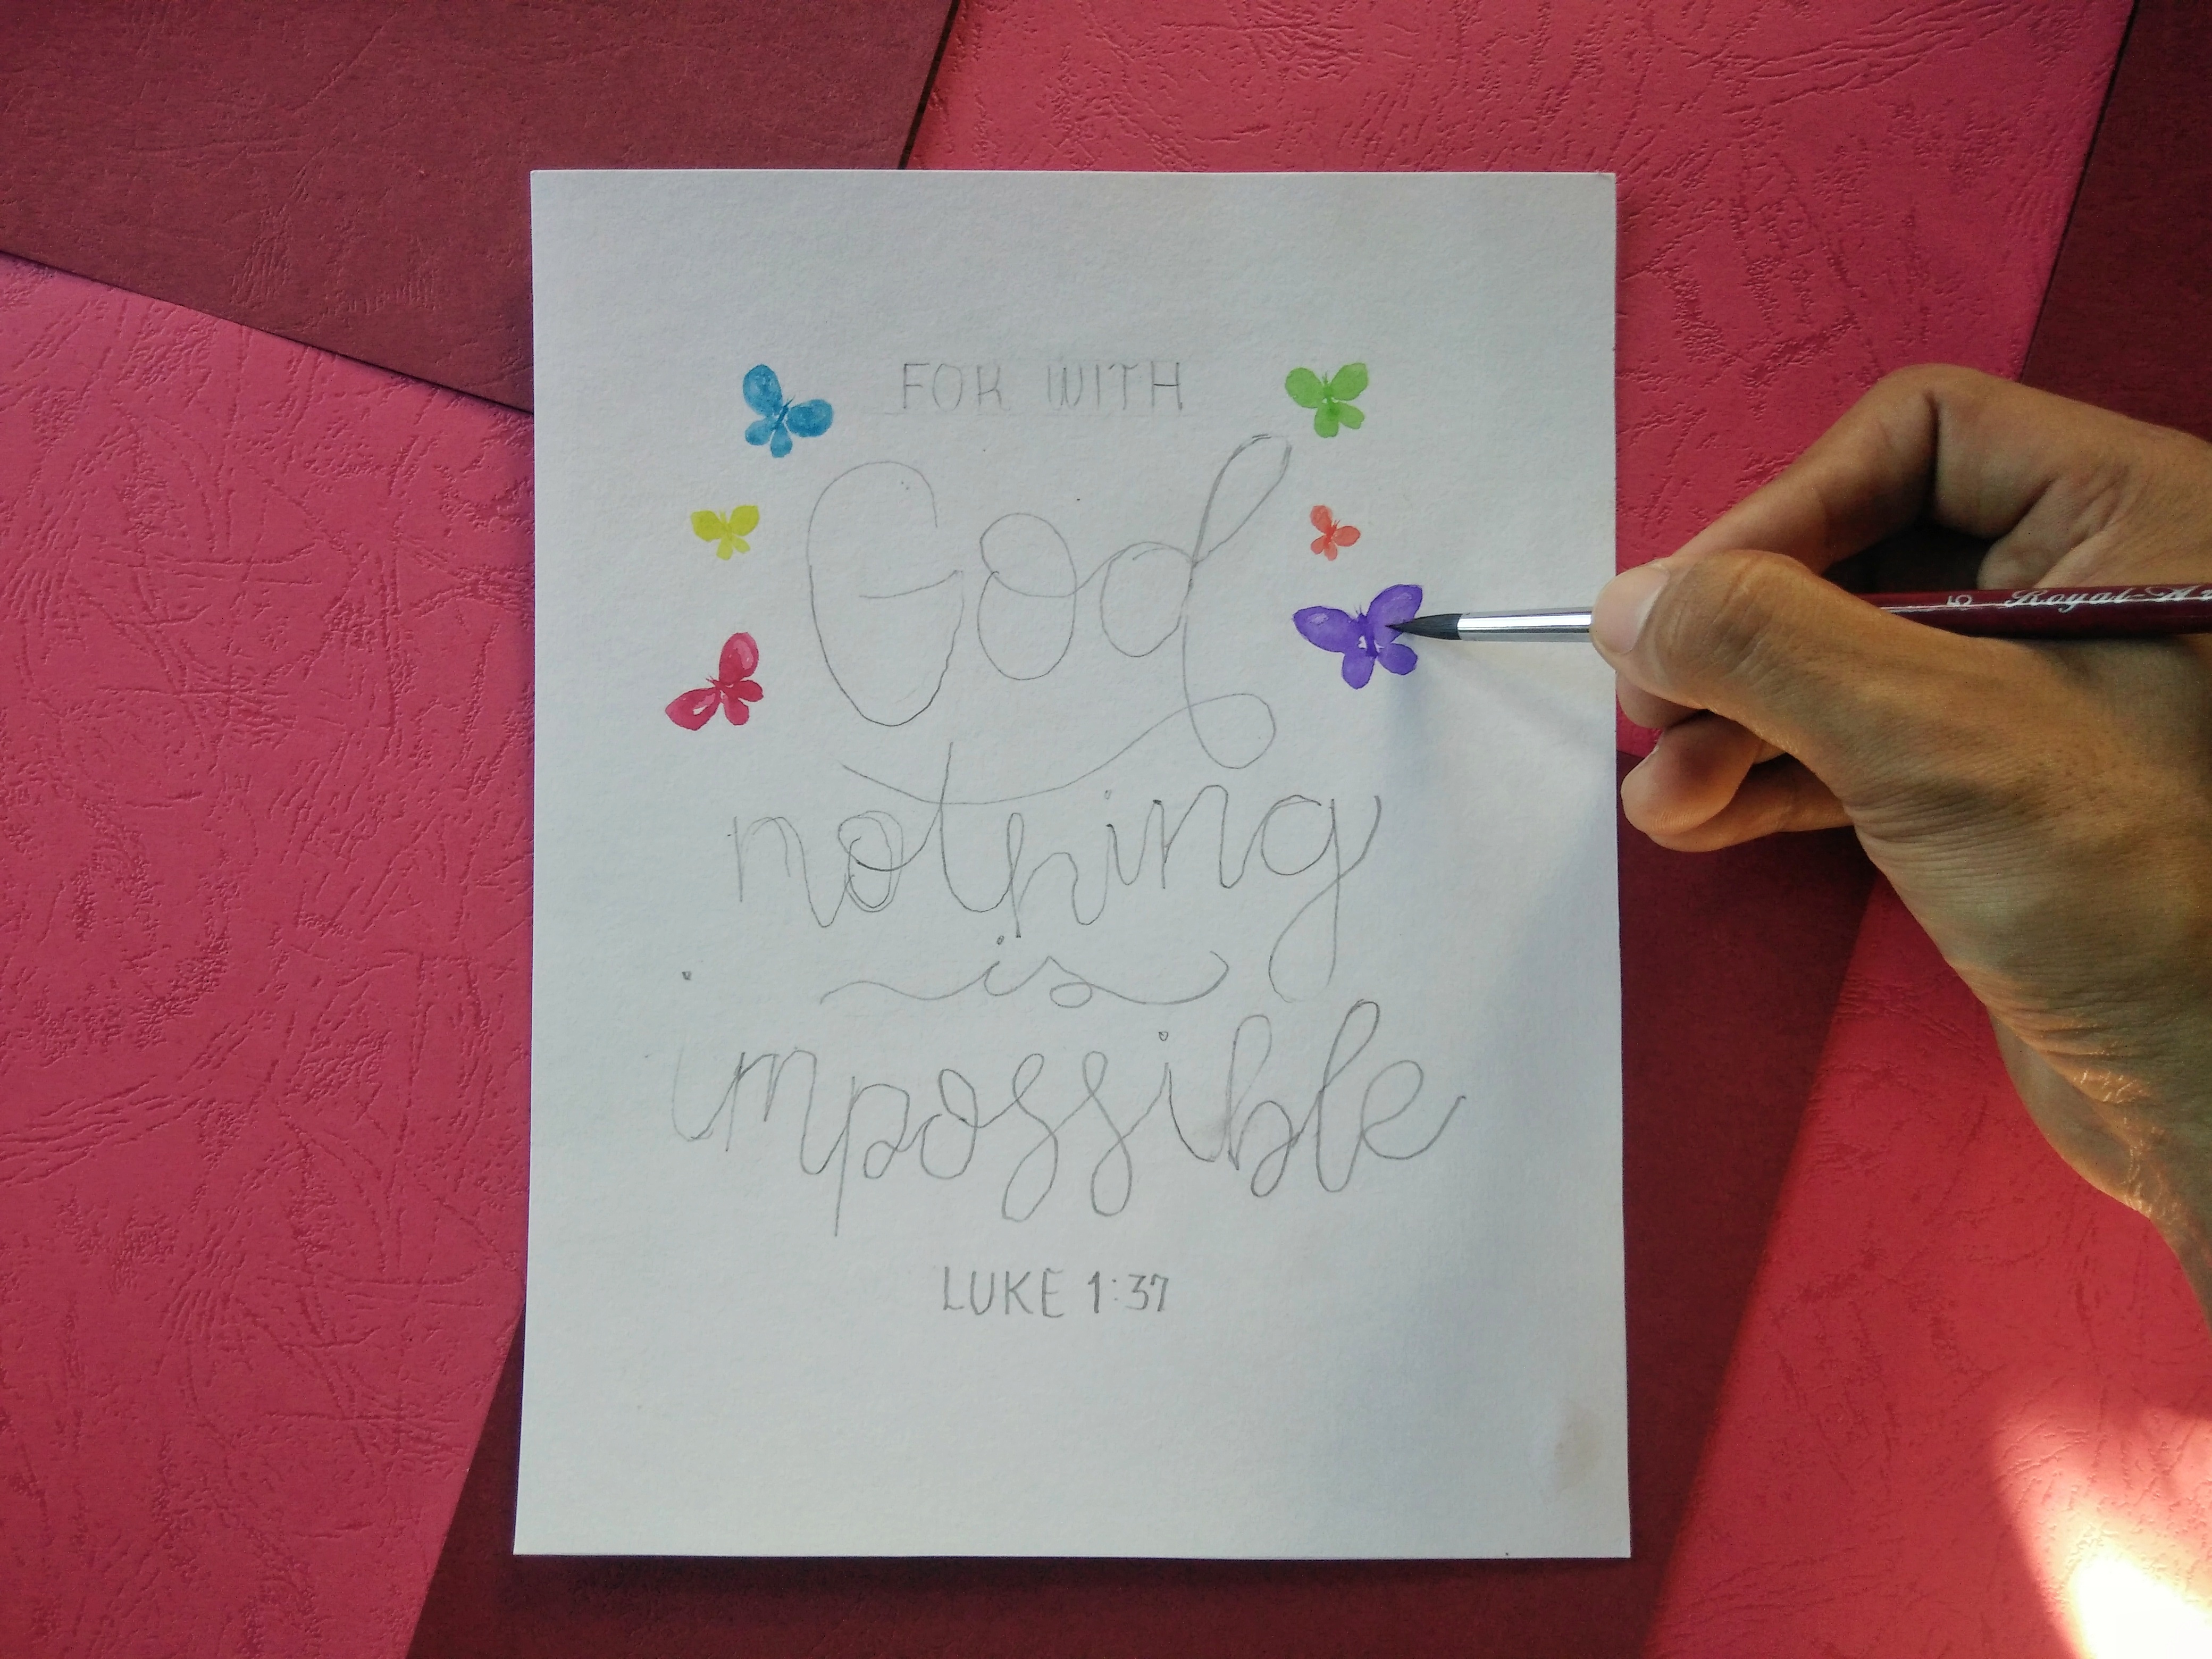 FOR WITH
God
nothing
is
impossible
LUKE 1:37
5 Royal-A